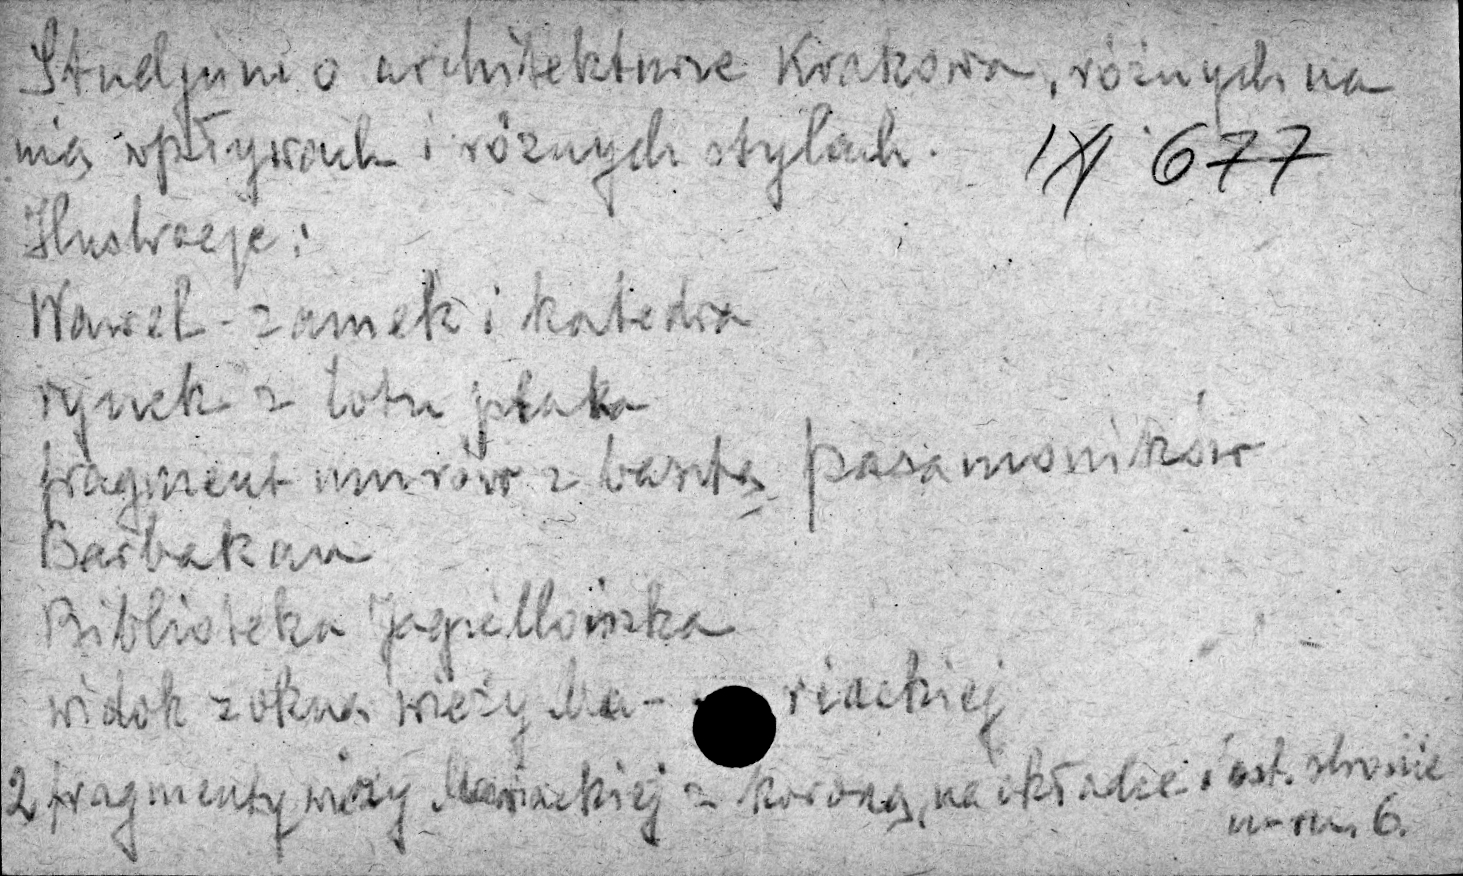 Studjum o architekturze Krakowa, różnych na
nią wpływach i różnych stylach. IX 677
Ilustracje:
Wawel - zamek i katedra
rynek z lotu ptaka
fragment murów z basztą pasamoników
Barbakan
Biblioteka Jagiellońska
widok z okna wieży Ma- riackiej
2 fragmenty wieży Mariackiej z koroną, na okładce i ost. stronie
n-ru 6.